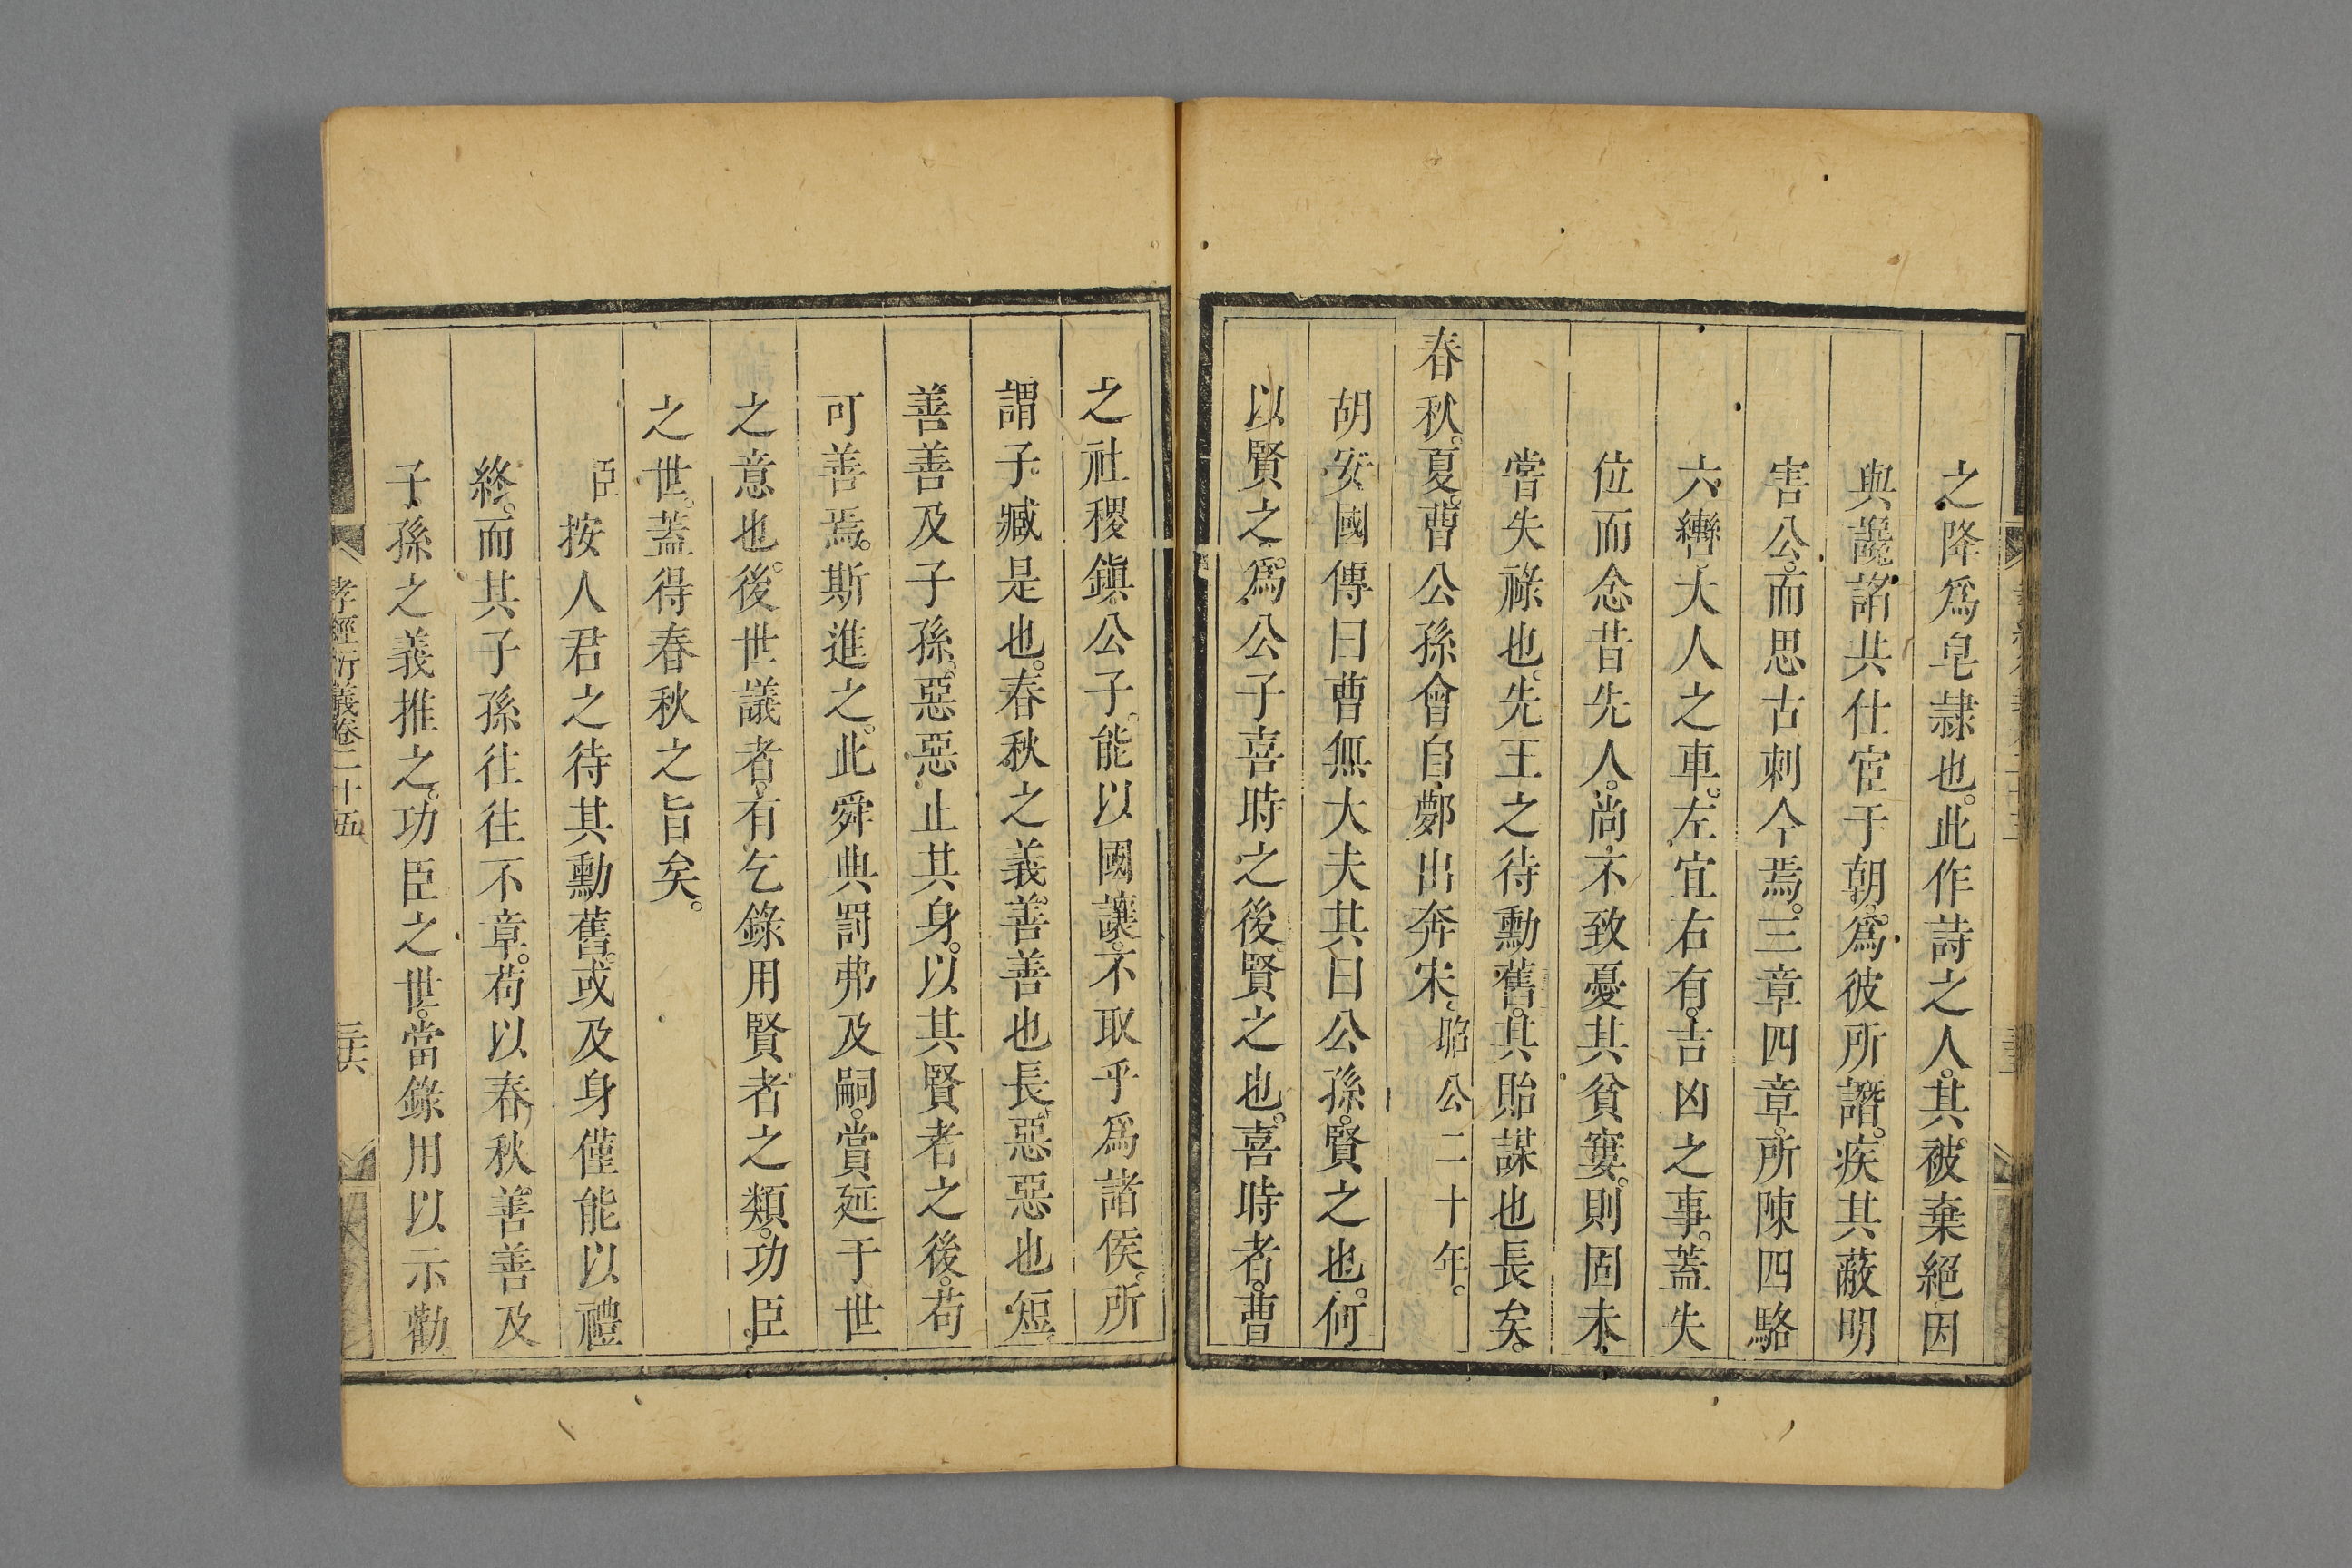 之降爲皂隷也。此作詩之人。其被棄絕因
與讒諂共仕宦于朝。爲彼所譖。疾其蔽明
害公。而思古刺今焉。三章四章。所陳四駱
六轡。大人之車。左宜右有。吉凶之事。蓋失
位而念昔先人。尚不致憂其貧窶。則固未
嘗失祿也。先王之待勳舊。其貽謀也長矣。
春秋。夏。曹公孫會自鄸出奔宋。昭公二十年。
胡安國傳曰曹無大夫其曰公孫。賢之也。何
以賢之。爲公子喜時之後賢之也。喜時者。曹
之社稷鎭。公子。能以國讓。不取乎爲諸侯。所
謂子臧是也。春秋之義。善善也長。惡惡也短。
善善及子孫。惡惡止其身。以其賢者之後。苟
可善焉。斯進之。此舜典罰弗及嗣。賞延于世
之意也。後世議者。有乞錄用賢者之類。功臣
之世。蓋得春秋之旨矣。
臣按人君之待其勳舊。或及身僅能以禮
終。而其子孫往往不章。苟以春秋。善善及
子孫之義推之。功臣之世。當錄用以示勸
孝經衍義卷二十五
三六